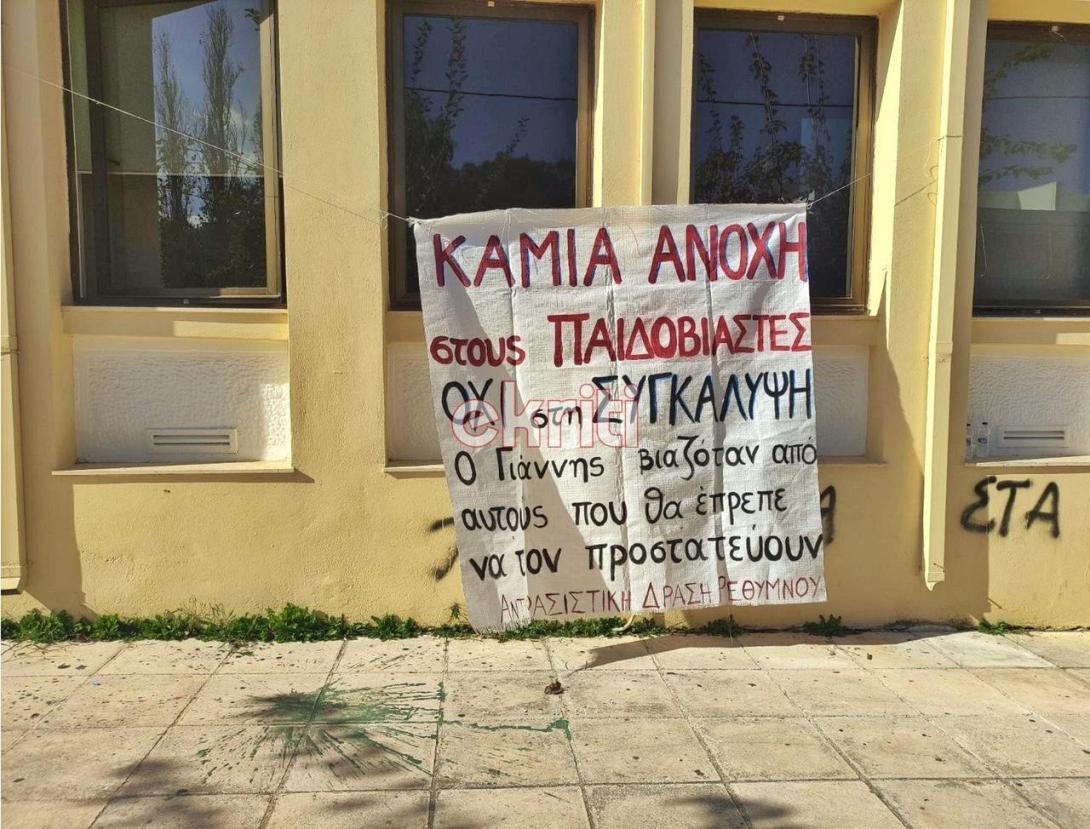 ΚΑΜΙΑ ΑΝΟΧΗ
στους ΠΑΙΔΟΒΙΑΣΤΕΣ
ΟΧΙ στη ΣΥΓΚΑΛΥΨΗ
Ο Γιάννης βιαζόταν από
αυτους που θα έπρεπε
να τον προστατεύουν
ΑΝΤΡΑΣΙΣΤΙΚΗ ΔΡΑΣΗ ΡΕΘΥΜΝΟΥ
ekriti
ΣΤΑ